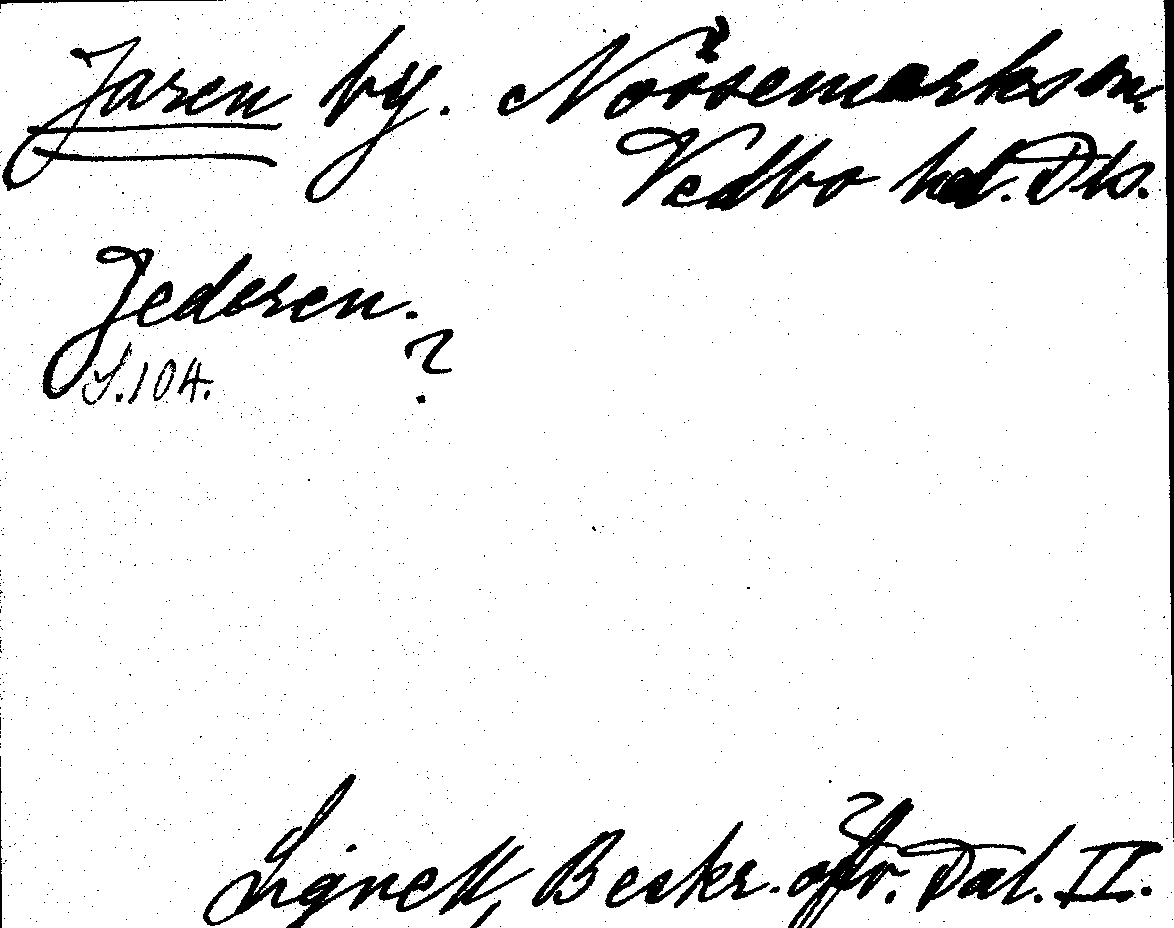 Jaren by. Nössemarks sn.
Vedbo hd. Dls.
Jederen.
?
S. 104.
Lignell, Beskr. öfvr. Dal. II.